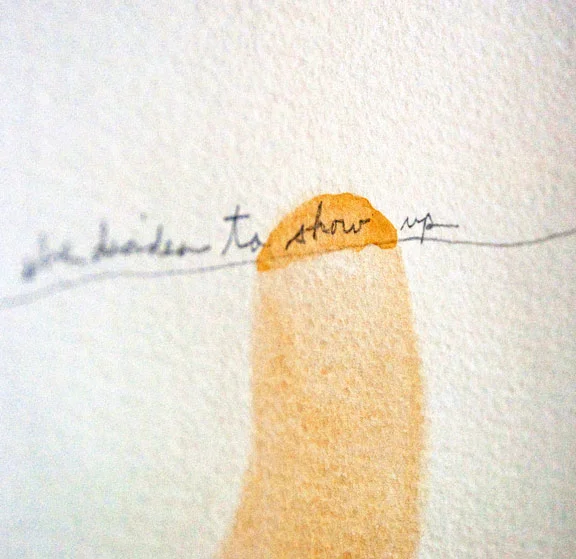 she decides to show up